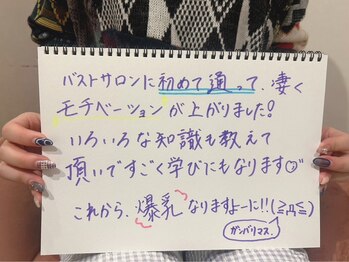 バストサロンに初めて通って、凄く
モチベーションが上がりました!
いろいろな知識も教えて
頂いてすごく学びにもなります♡
これから、爆乳なりますよーに!!(≧円≦)
ガンバリマス。